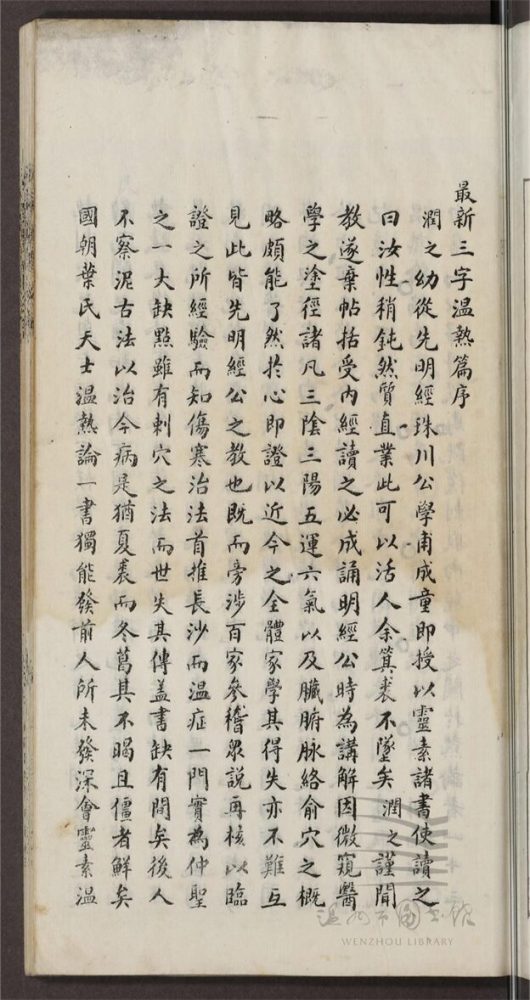 最新三字温熱篇序
潤之幼從先明經珠川公學甫成童即授以靈素諸書使讀之
曰汝性稍鈍然質直業此可以活人余箕裘不墜矣潤之謹聞
教遂棄帖括受内經讀之必成誦明經公時為講解因微窺醫
學之塗徑諸凡三陰三陽五運六氣以及臟腑脉絡俞穴之概
略頗能了然於心即證以近今之全體家學其得失亦不難互
見此皆先明經公之教也既而旁涉百家參稽眾說再核以臨
證之所經驗而知傷寒治法首推長沙而温症一門實為仲聖
之一大缺點雖有刺穴之法而世失其傳盖書缺有間矣後人
不察泥古法以治今病是猶夏裘而冬葛其不暍且僵者鮮矣
國朝葉氏天士温熱論一書獨能發前人所未發深會靈素温
温州市圖書館
WENZHOU LIBRARY